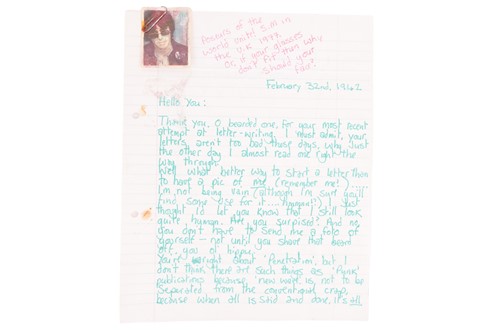 Posers of the
World Unite! S.M in
the U.K 1979.
Or, if your glasses
don't fit then why
should your
face?
February 32nd, 1942
Hello You:
Thank you, O bearded one, for your most recent
attempt at letter-writing. I must admit, your
letters aren't too bad these days, why just
the other day I almost read one right the
way through.
Well what better way to start a letter than
to have a pic of me (remember me!).....
I'm not being vain (although I'm sure you'll
find some use for it....
I just
thought I'd let you know that I still look
quite human. Are you surprised? And no,
you don't have to send me a foto of
yourself - not until you shave that beard
off, you ol hippy.
You're right about 'Penetration', but I
don't think there are such things as 'Punk'
publications because 'new wave' is not to be
separated from the conventional crap,
because when all is said and done, it's all